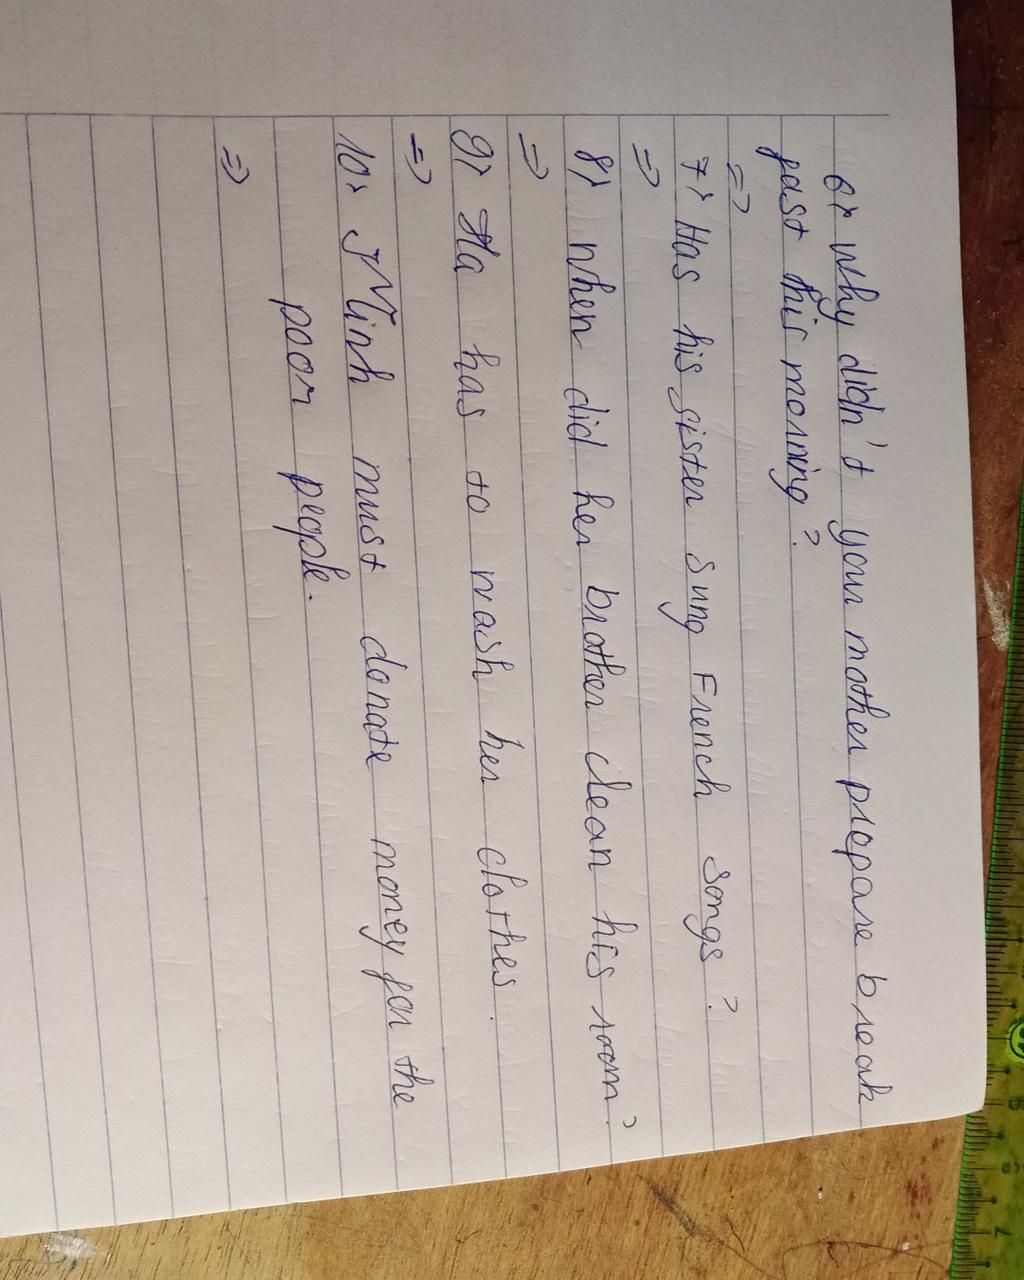 6> Why didn't your mother prepare break
fast this morning?
=>
7> Has his sister sung French songs?
=>
8> When did her brother clean his room?
=>
9> Ha has to wash her clothes.
=>
10> Minh must donate money for the
poor people.
=>